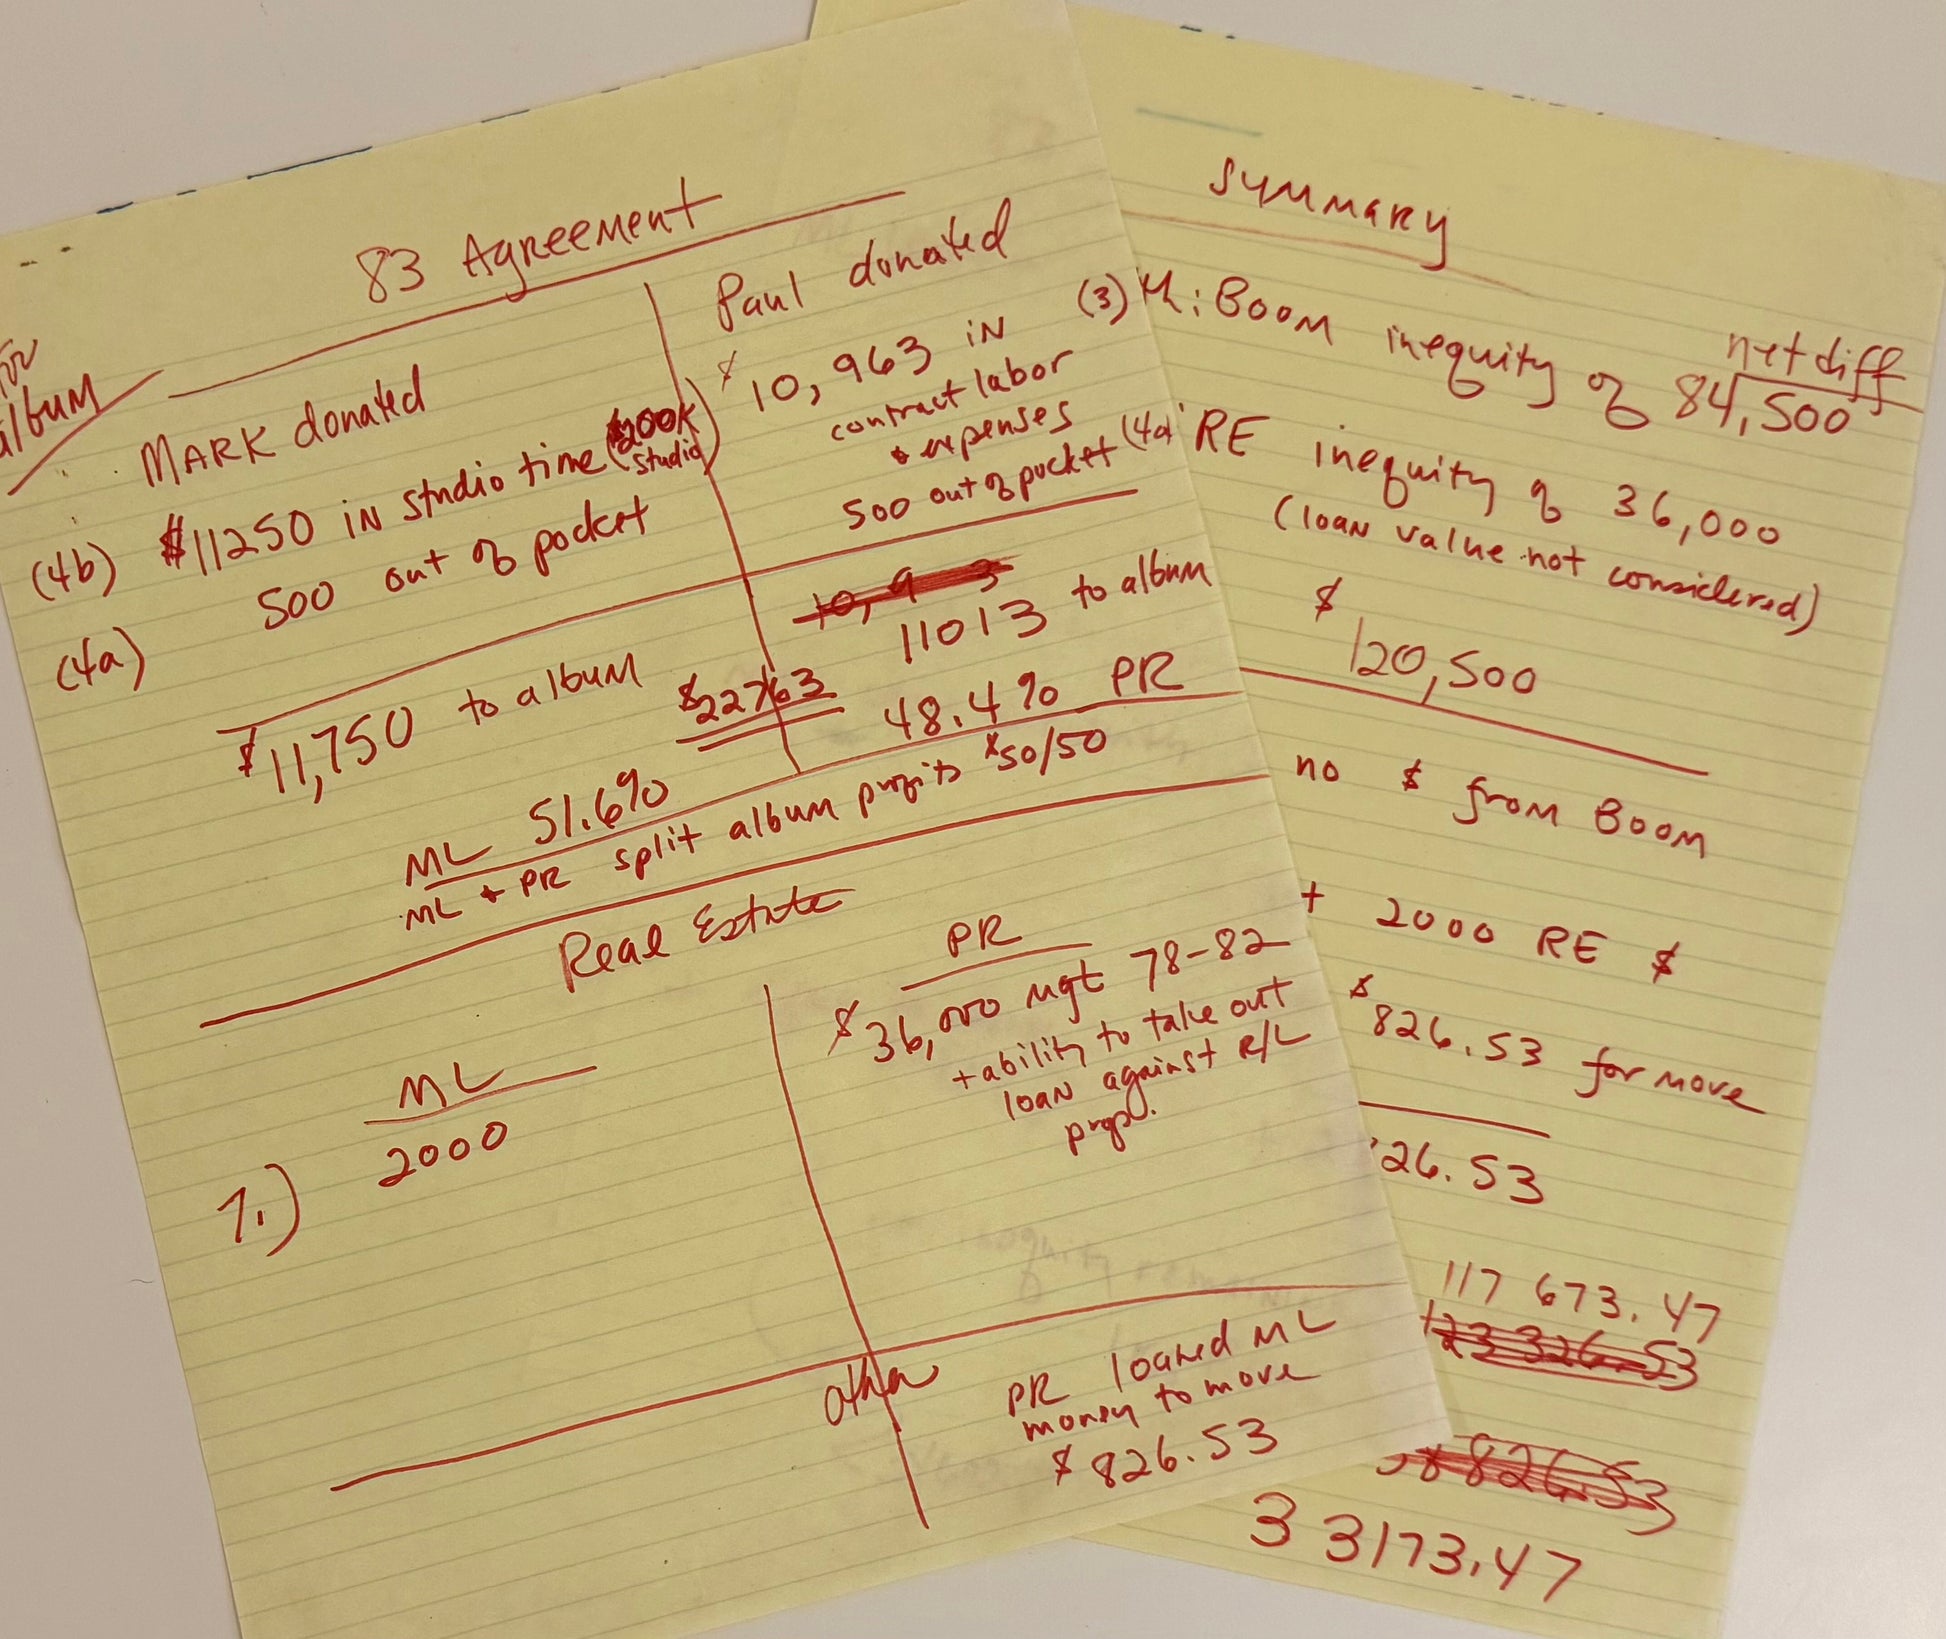 83 Agreement
for
album
MARK donated
(4b) $11250 in studio time ($200K
studio)
(4a) 500 out of pocket
$11,750 to album
$22763
ML 51.6%
Paul donated
$10,963 in
contract labor
+ expenses
500 out of pocket
11013 to album
48.4% PR
ML + PR split album profits $50/50
Real Estate
ML
1.) 2000
PR
$36,000 mgt 78-82
+ ability to take out
loan against R/L
prop.
other
PR loaned ML
money to move
$826.53
Summary
(3) : Boom inequity of 84,500
net diff
(4a) RE inequity of 36,000
(loan value not considered)
$120,500
no $ from Boom
+ 2000 RE $
$826.53 for move
26.53
117 673.47
123 326.53
826.53
3 3173.47